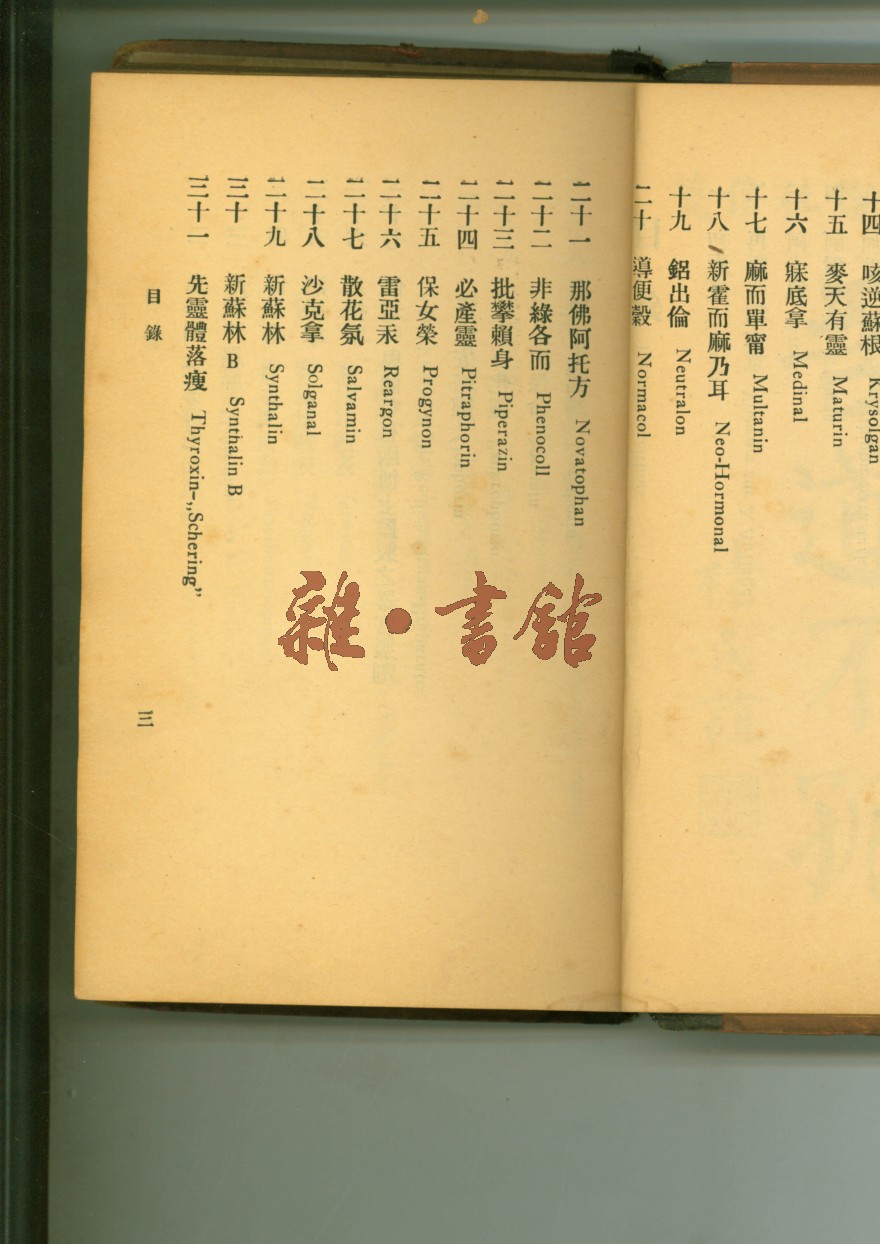 十四 咳逆蘇根 Krysolgan
十五 麥天有靈 Maturin
十六 寐底拿 Medinal
十七 麻而單甯 Multanin
十八 新霍而麻乃耳 Neo-Hormonal
十九 鋁出倫 Neutralon
二十 導便穀 Normacol
二十一 那佛阿托方 Novatophan
二十二 非綠各而 Phenocoll
二十三 批攀賴身 Piperazin
二十四 必產靈 Pitraphorin
二十五 保女榮 Progynon
二十六 雷亞汞 Reargon
二十七 散花氛 Salvamin
二十八 沙克拿 Solganal
二十九 新蘇林 Synthalin
三十 新蘇林 B Synthalin B
三十一 先靈體落瘦 Thyroxin-„Schering”
目錄
三
雜•書館